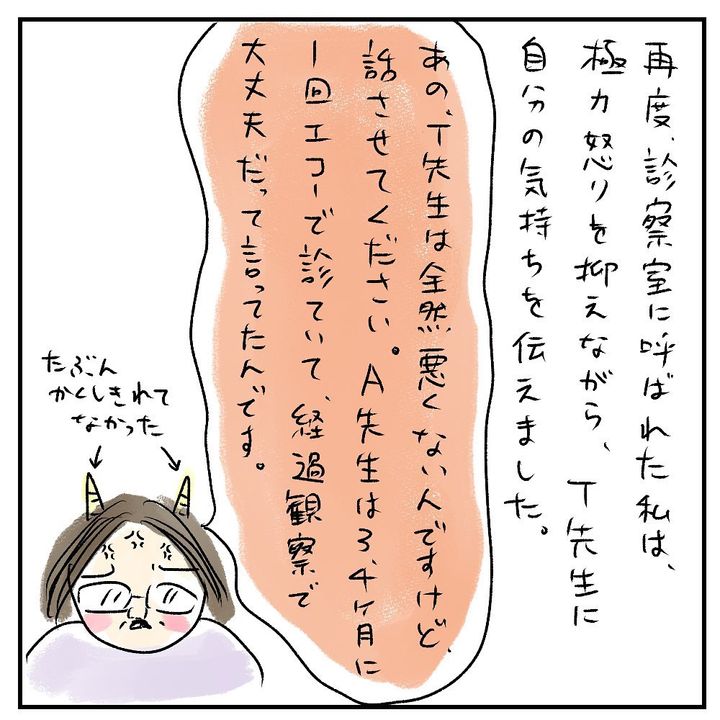 再度、診察室に呼ばれた私は、
極力怒りを抑えながら、T先生に
自分の気持ちを伝えました。
あの、T先生は全然悪くない人ですけど、
話させてください。A先生は3、4ヶ月に
1回エコーで診ていて、経過観察で
大丈夫だって言ってたんです。
たぶん
かくしきれて
なかった